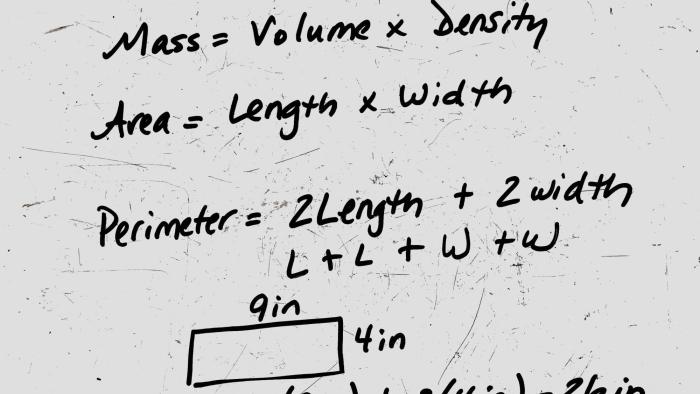 Mass = Volume x Density
Area = Length x Width
Perimeter = 2Length + 2 width
L + L + W + W
9in
4in